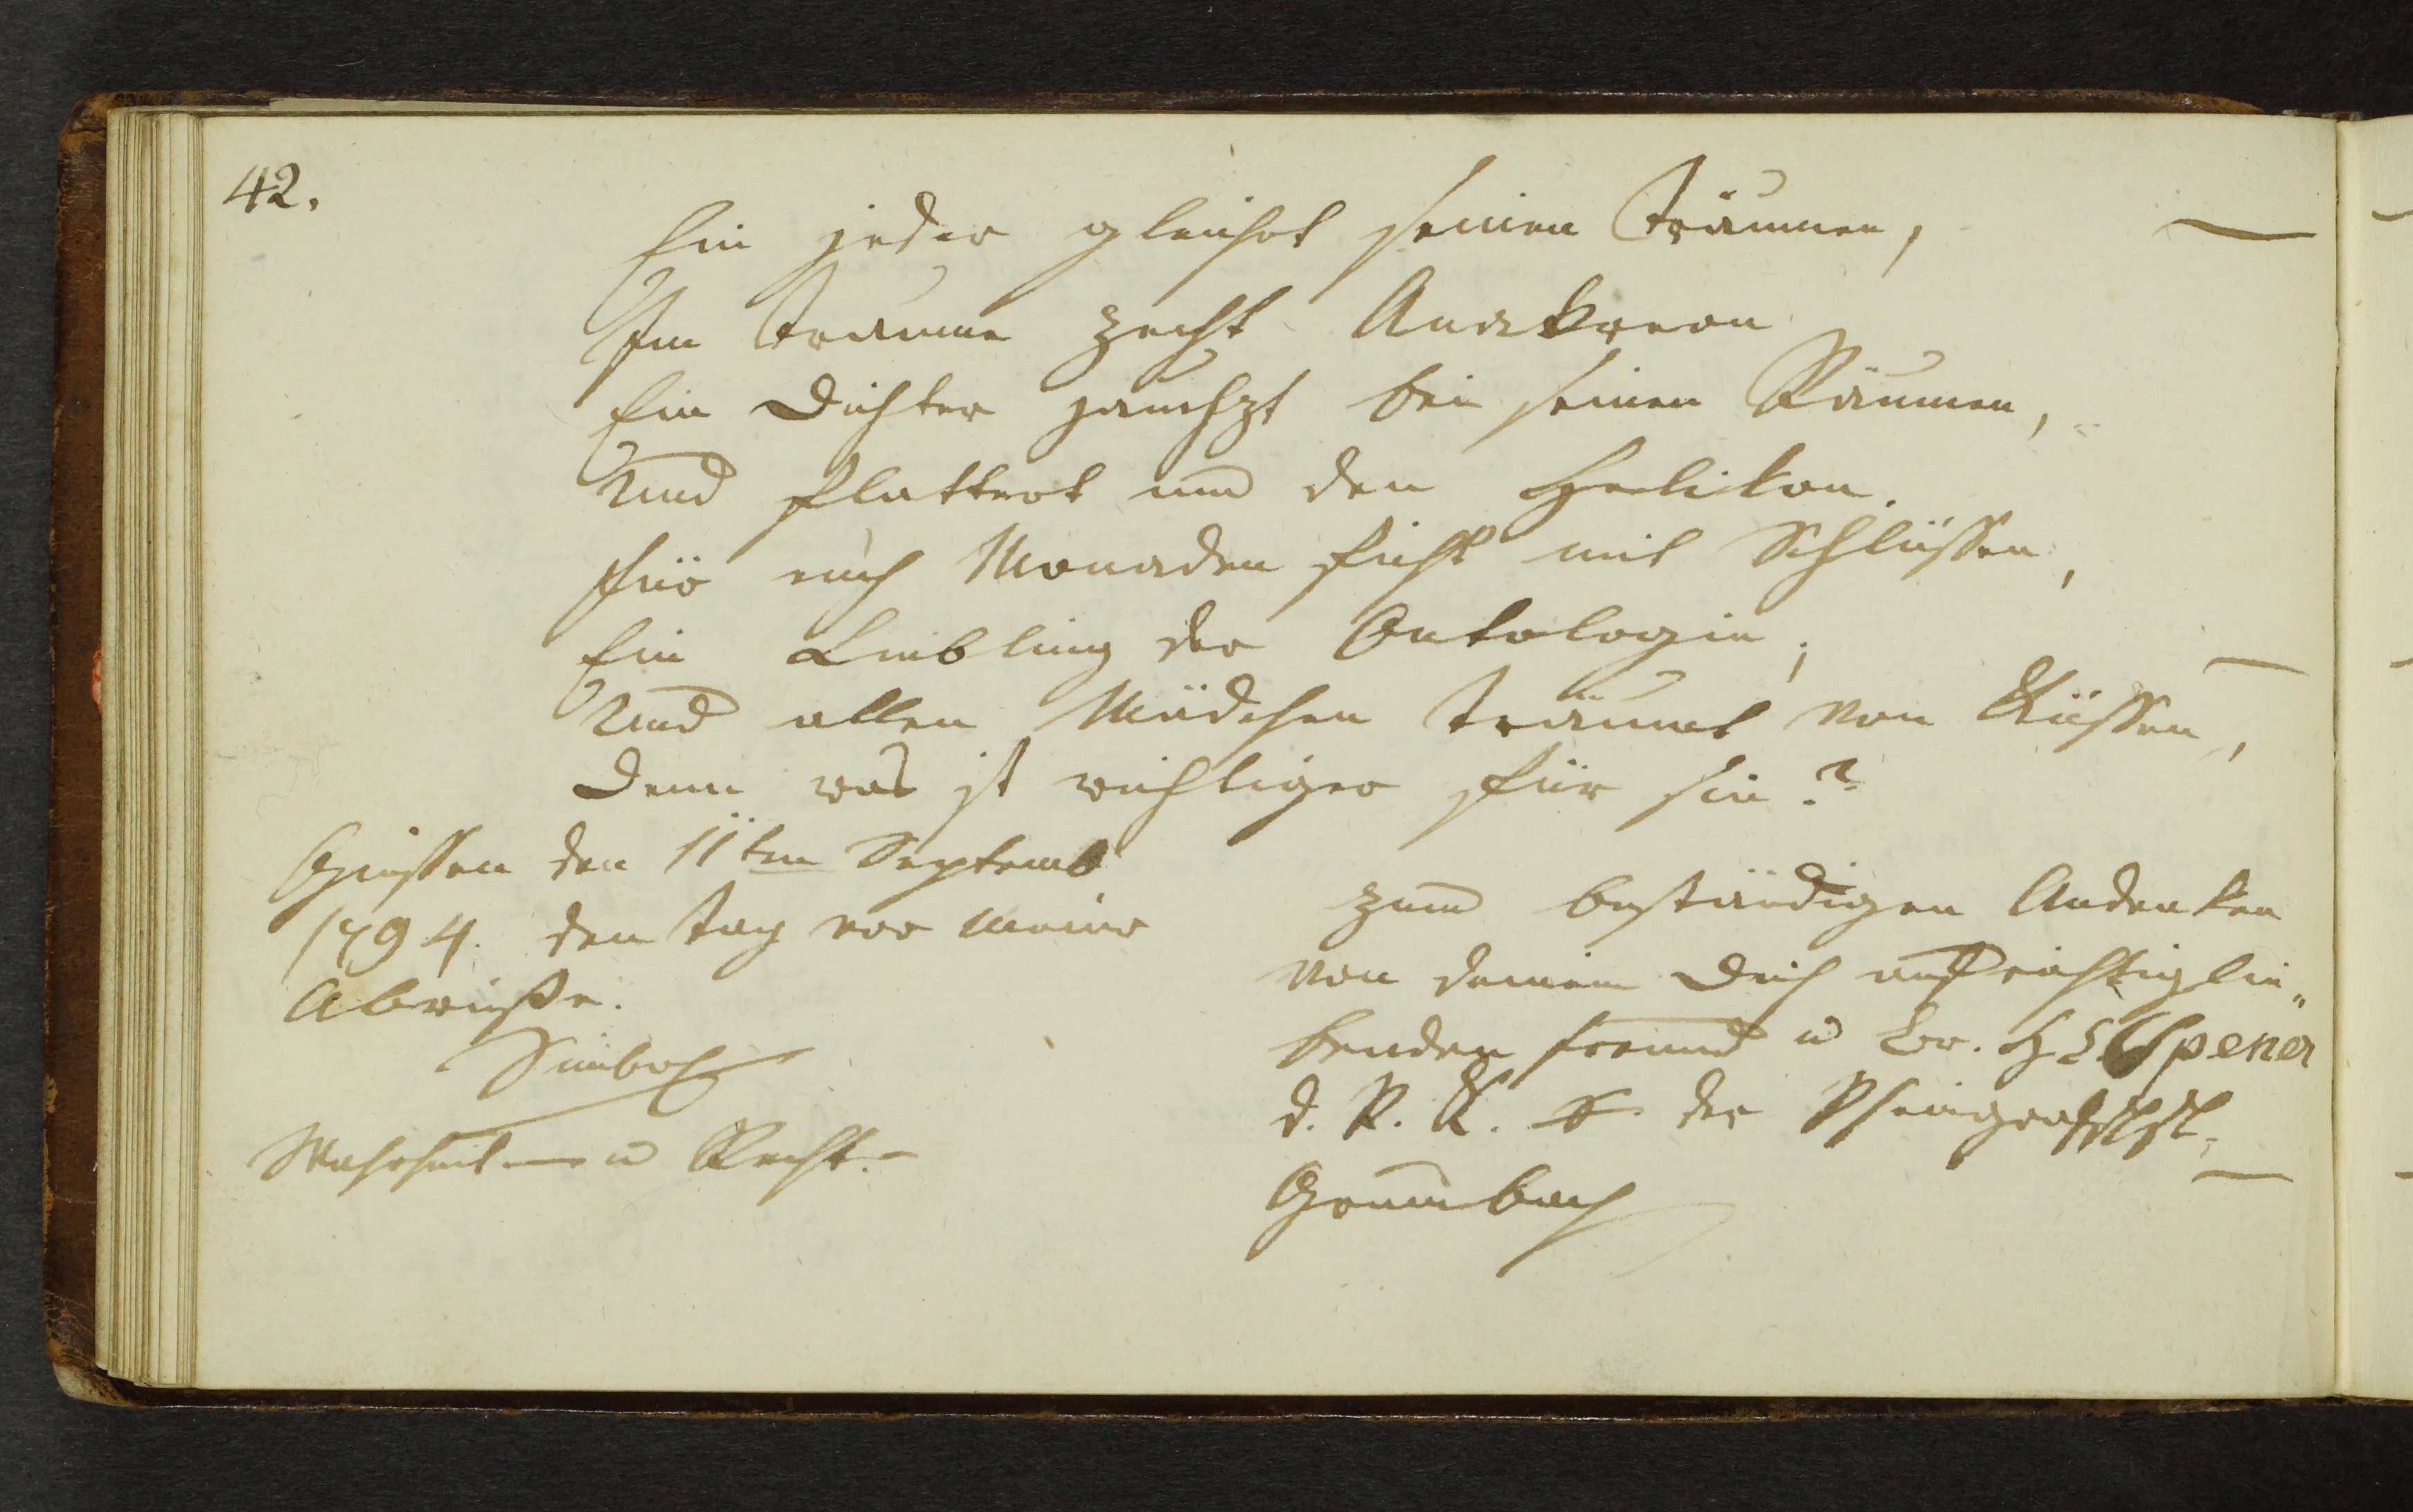 42.
Ein jeder gleichet seinen Träumen,
Im Traume zecht Anakreon
Ein Dichter jauchzt bei seinen Räumen,
Und flattert um den Helikon.
Für euch Monaden ficht mit Schlüssen,
Ein Liebling der Ontologie;
Und allen Mädchen träumt von Küssen,
Denn was ist wichtiger für sie?
Giessen den 11ten Septemb.
1794. den Tag vor meiner
Abreiße.
Simbol
Wahrheit u Recht.
zum beständigen Andenken
von deinem Dich aufrichtig lie„
benden Freund u Br. Spener
d. R. K. der Rheingrafschft.
Grumbach